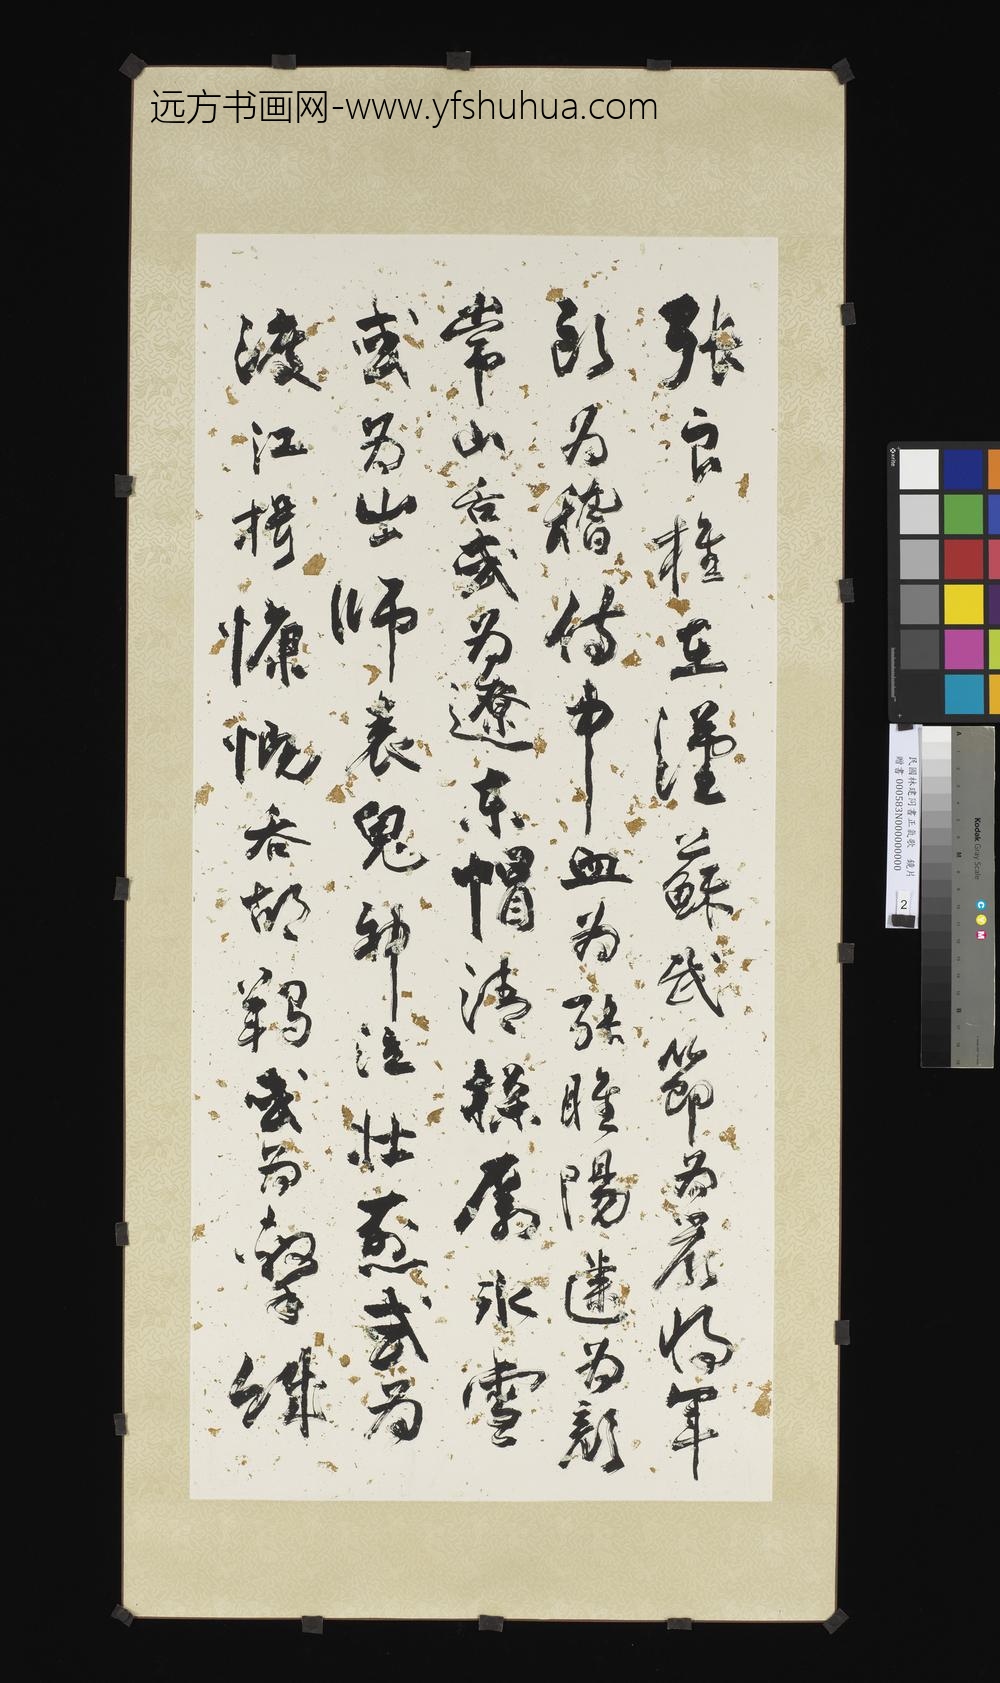 远方书画网-www.yfshuhua.com
張良椎在漢蘇武節為嚴將軍
頭為稽侍中血為張睢陽齒為顏
常山舌或為遼東帽清操厲冰雪
或為出師表鬼神泣壯烈或為
渡江楫慷慨吞胡羯或為擊賊
x-rite
民國林建同書正氣歌 鏡片
贈書 000583N000000000
2
Kodak Gray Scale
C Y M
A
M
B